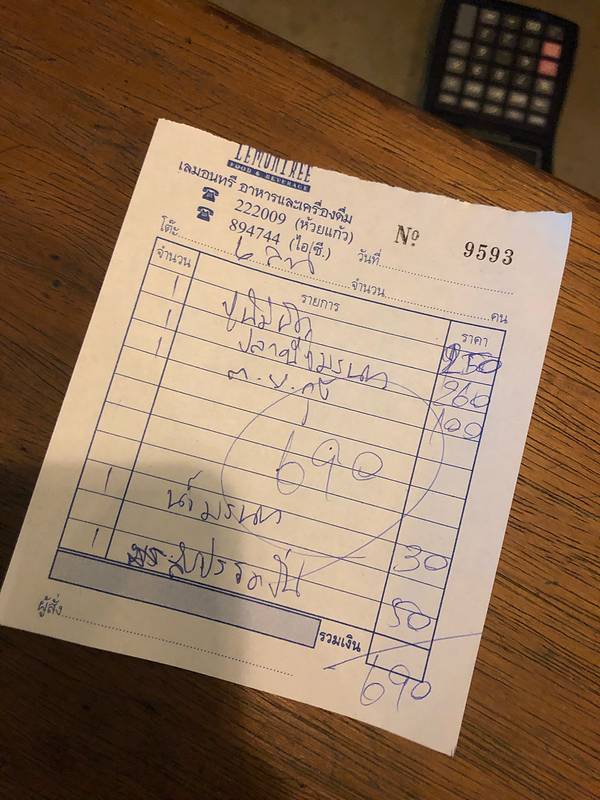 LEMONTREE
FOOD & BEVERAGE
เลมอนทรี อาหารและเครื่องดื่ม
222009 (ห้วยแก้ว)
894744 (ไอ.ซี.)
Nº 9593
โต๊ะ วันที่
จำนวน คน
จำนวน รายการ ราคา
1 ปูนิ่ม 250
1 มะนาว 260
1 ต.ย.กุ้ง 100
690
1 น้ำมะนาว 30
1 สับปะรดปั่น 50
รวมเงิน 690
ผู้สั่ง